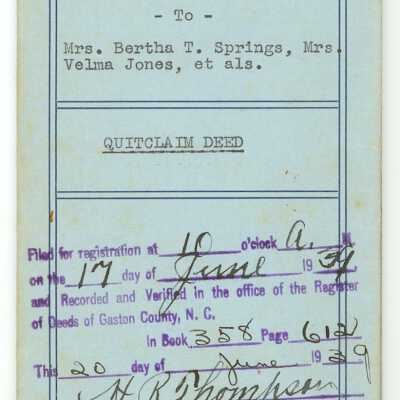 - To -
Mrs. Bertha T. Springs, Mrs.
Velma Jones, et als.
QUITCLAIM DEED
Filed for registration at 10 o'clock A. M
on the 17 day of June 1939
and Recorded and Verified in the office of the Register
of Deeds of Gaston County, N. C.
in Book 358 Page 612
This 20 day of June 1939
H R Thompson